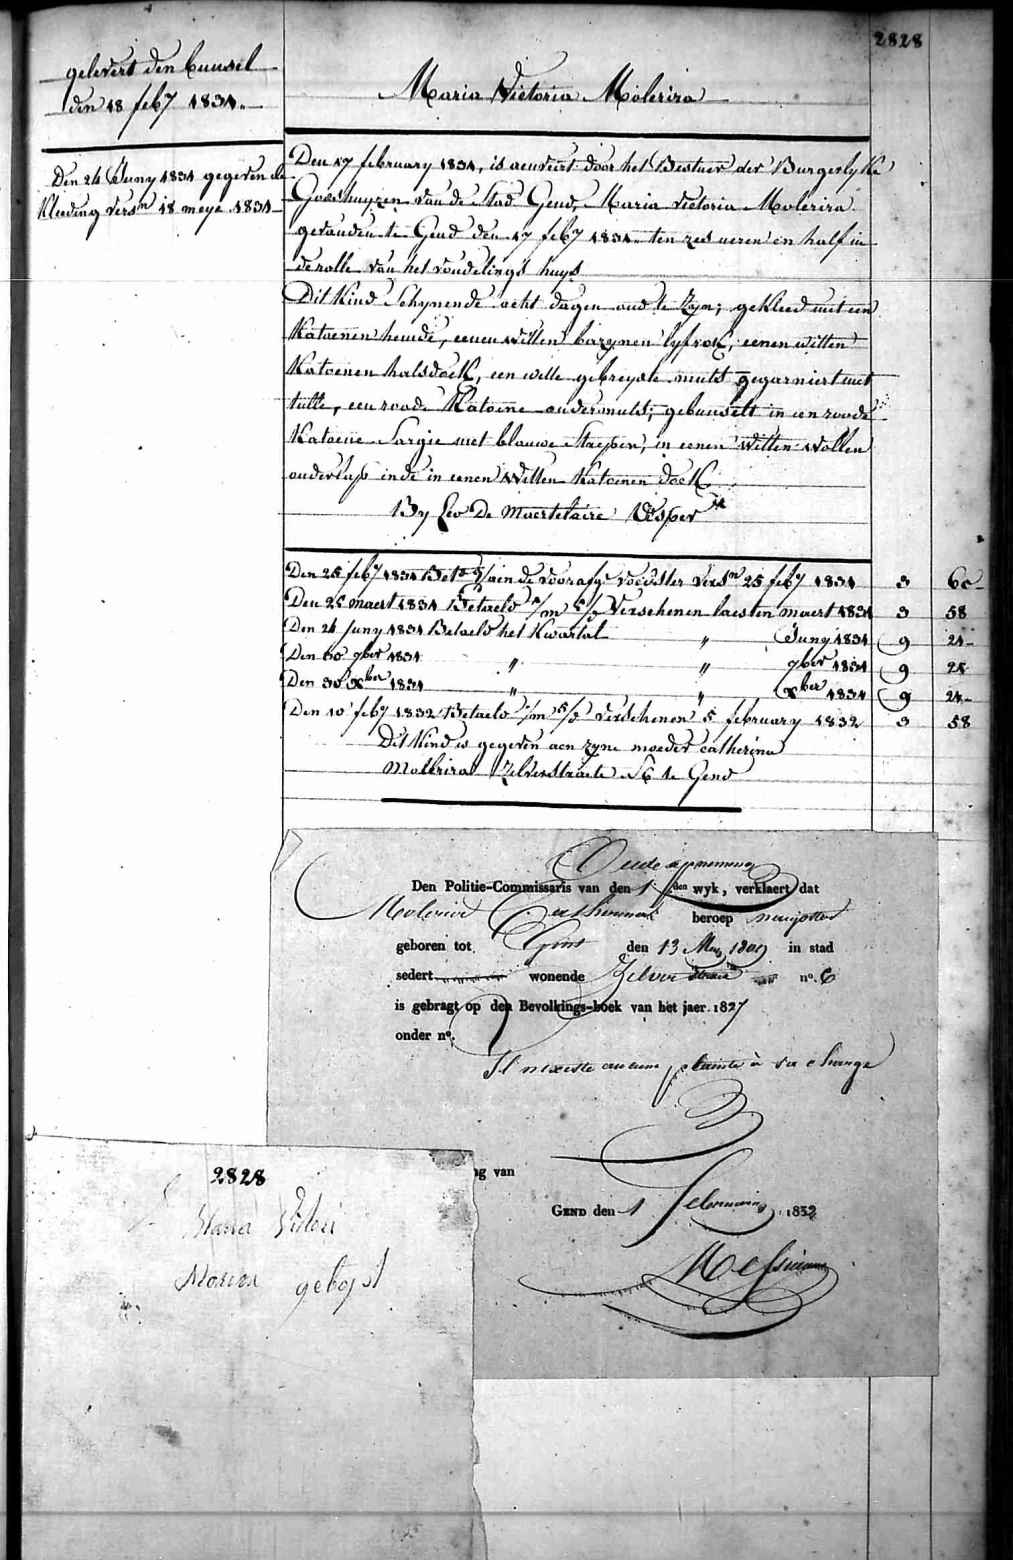 2828
gelevert den bunsel
den 18 feby 1831.
Den 24 Juny 1831 gegeven de
Kleeding versn 18 meye 1831
Maria Victoria Molerira
Den 17 february 1831, is aenveirt door het Bestuer der Burgerlyke
Godshuyzen van de Stad Gend, Maria Victoria Molerira
gevonden te Gend den 17 feby 1831. ten zes ueren en half in
de rolle van het vondelings huys
Dit Kind Schynende acht dagen oud te zyn; gekleed met een
Katoenen hemde, eenen witten bazynen lyfrok, eenen witten
Katoenen halsdoek, een witte gebreyde muts gegarniert met
tulle, een roode Katoene ondermuts; gebunselt in een roode
Katoene Sargie met blauwe Streepen, in eenen witten wollen
onderlap ende in eenen witten Katoenen doek
By Leo De Maertelaire
Den 25 feby 1831 de voorafge voedster versn 25 feby 1831 3 60
Den 25 maert 1831 Betaeld Verschenen laesten maert 1831 3 58
Den 24 Juny 1831 Betaeld het Kwartal " Juny 1831 9 24
Den 30 7ber 1831 " " 7ber 1831 9 24
Den 30 Xber 1831 " " Xber 1831 9 24
Den 10 feby 1832 Betaeld verschenen 5 february 1832 3 58
Dit Kind is gegeven aen zyne moeder catherina
Molerira Zilverstraete N 6 te Gend
Den Politie-Commissaris van den 1 sten wyk, verklaert dat
Molerira Catharina beroep
geboren tot Gent den 13 1809 in stad
sedert wonende Zilver straat no. 6
is gebragt op den Bevolkings-boek van het jaer 1827
onder no.
Il n'existe aucune plainte à sa charge
og van
Gend den 1 februarii 1832
2828
Maria Victori